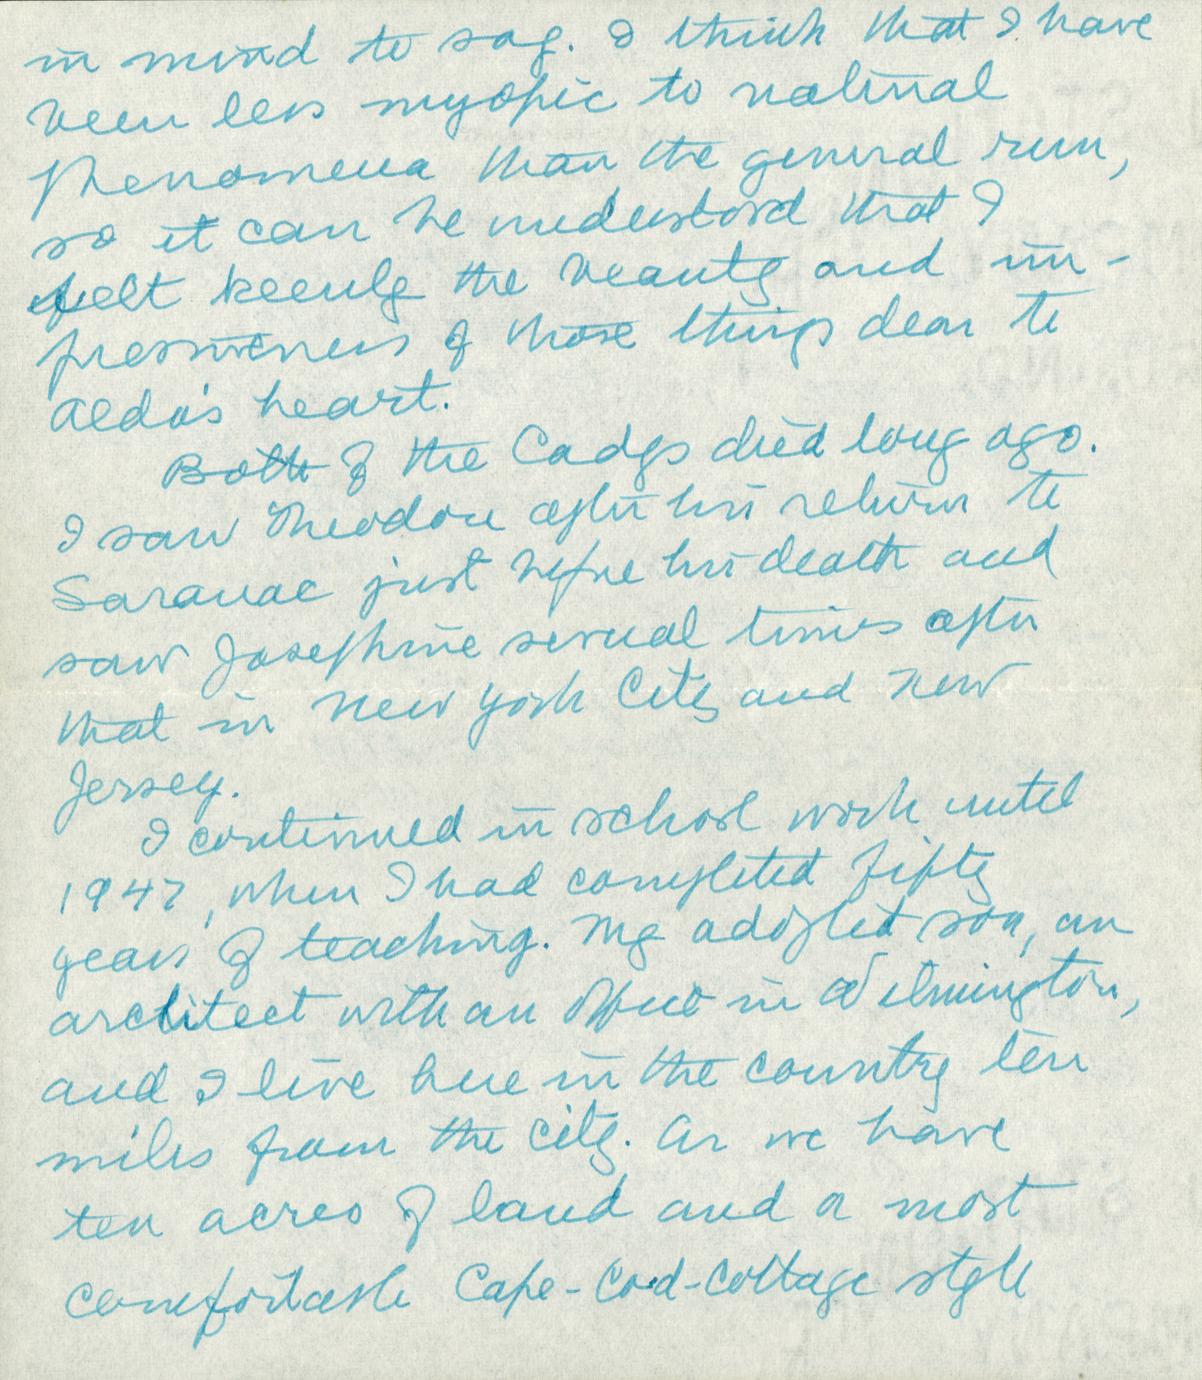 in mind to say. I think that I have
been less myopic to natural
phenomena than the general run,
so it can be understood that I
felt keenly the beauty and im-
pressiveness of those things dear to
Aldo's heart.
Both of the Cadys died long ago.
I saw Theodore after his return to
Saranac just before his death and
saw Josephine several times after
that in New York City and New
Jersey.
I continued in school work until
1947, when I had completed fifty
years of teaching. My adopted son, an
architect with an office in Wilmington,
and I live here in the country ten
miles from the city. As we have
ten acres of land and a most
comfortable Cape-Cod-Cottage style